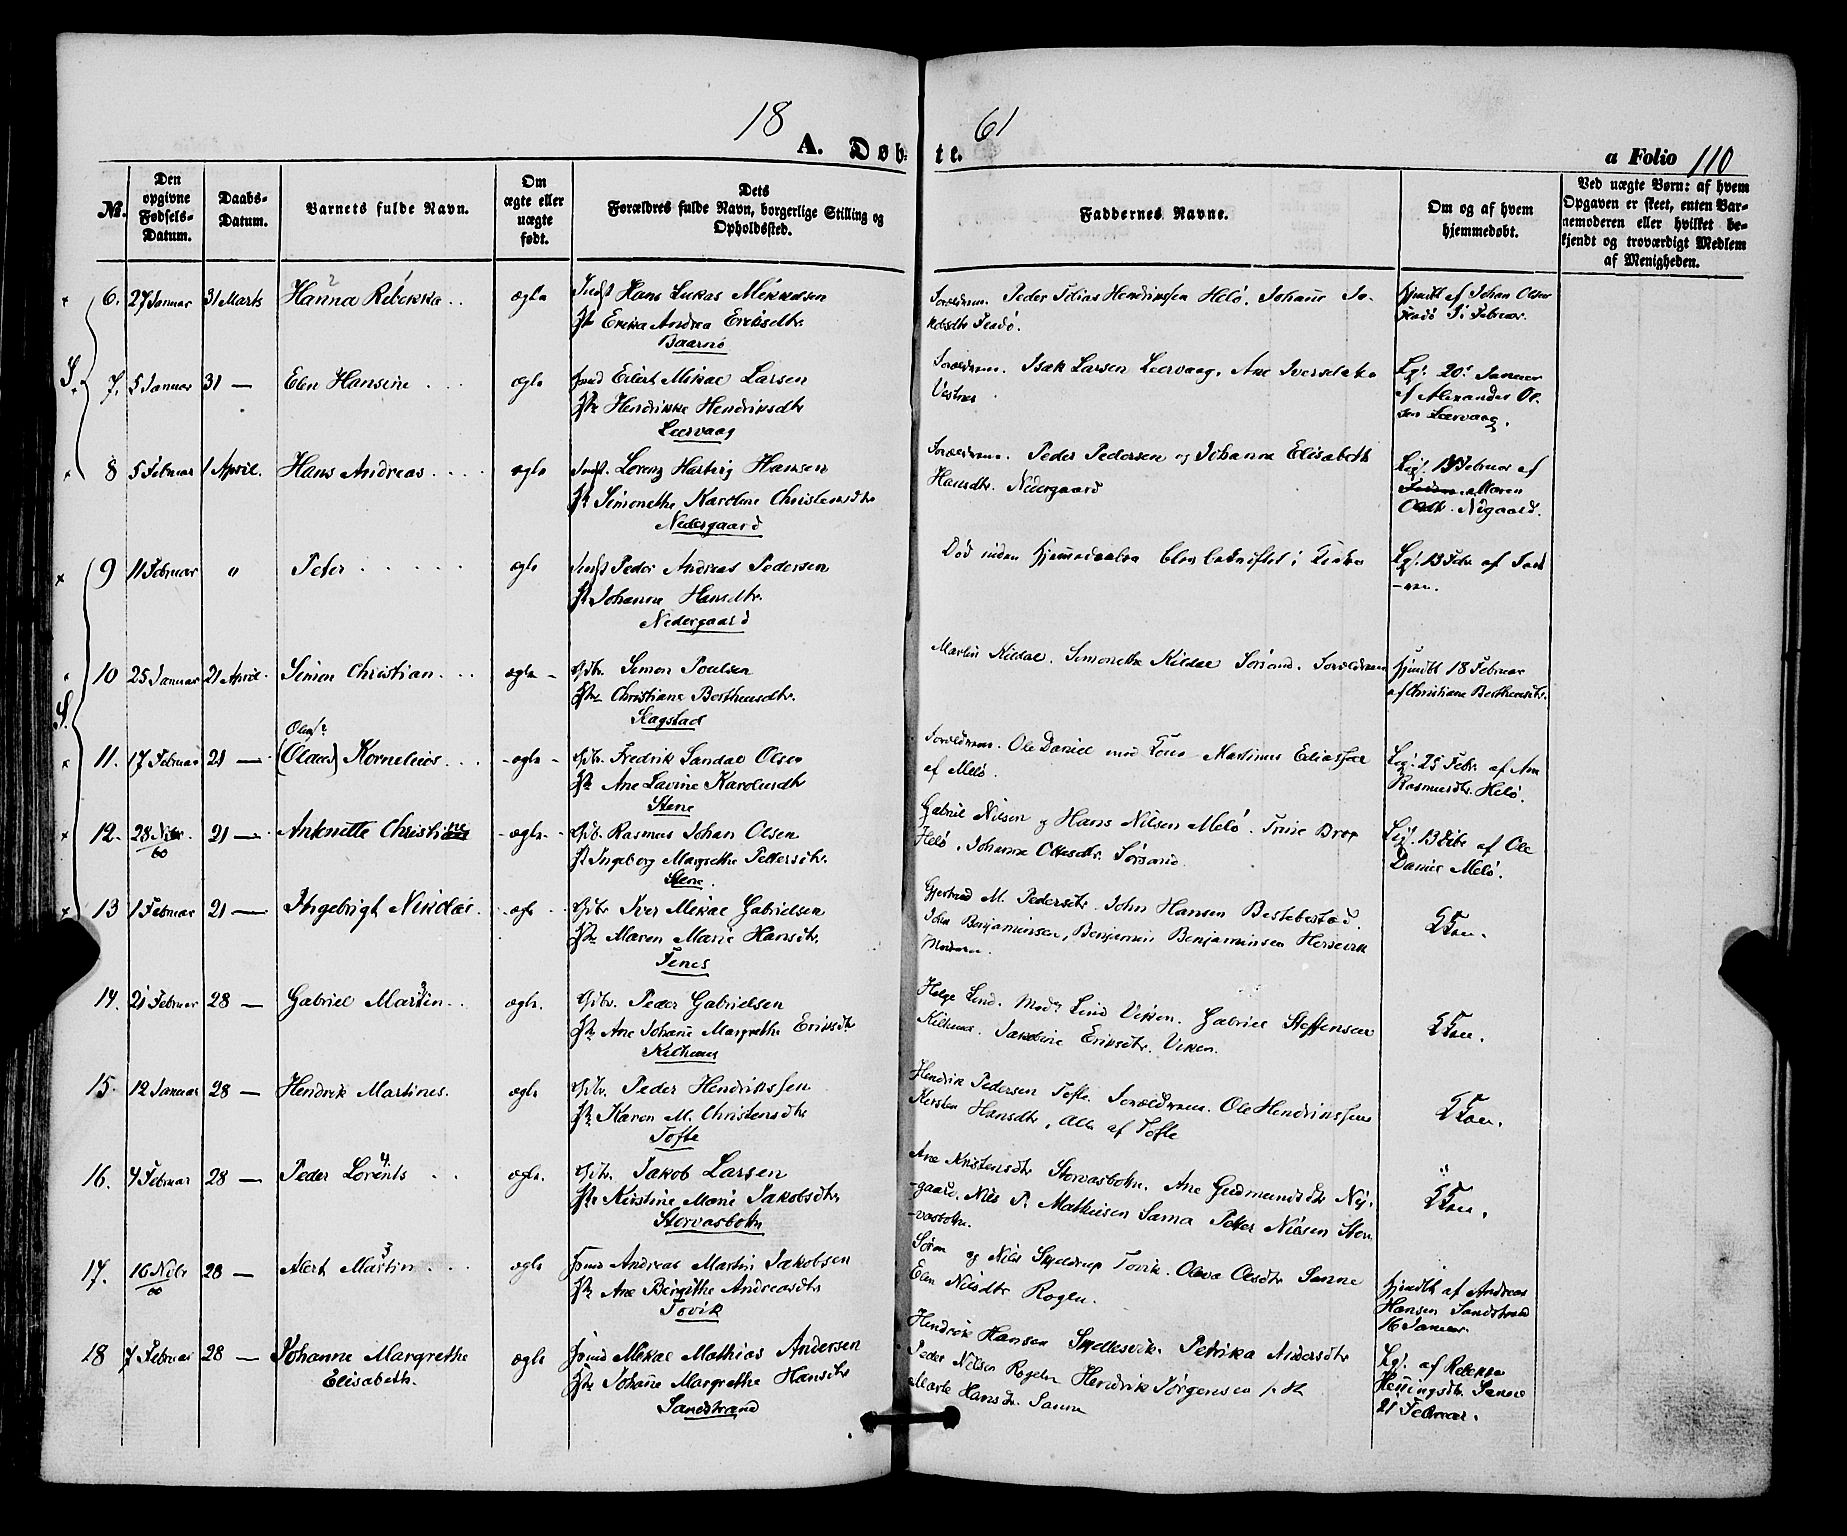 18 61
A. Døbte.
a Folio 110
No. Den opgivne Fødsels-Datum. Daabs-Datum. Barnets fulde Navn. Om ægte eller uægte født. Dets Forældres fulde Navn, borgerlige Stilling og Opholdssted. Faddernes Navne. Om og af hvem hjemmedøbt. Ved uægte Børn: af hvem Opgaven er skeet, enten Barnemoderen eller hvilket bekjendt og troværdigt Medlem af Menigheden.
6. 27 Januar 31 Marts Hanna Rebekka ægte Hans Lukas Mikkelsen
Erikka Andrea Eriksdtr
Baarnø
Forældrene. Peder Tobias Hendriksen Helø. Johanne Jakobsdtr
hjmdbt af Johan Olsen
Februar.
7. 5 Januar 31 — Elen Hansine ægte Eilert Mikal Larsen
Hendrikke Hendriksdtr
Leervaag
Forældrene. Isak Larsen Leervaag. Ane Iversdatter
Lig. 20 Januar
af Alexander Olsen Leervaag.
8 5 Februar 1 April. Hans Andreas ægte Lorenz Hartvig Hansen
Simonethe Karoline Christensdtr
Nedergaard
Forældrene. Peder Pedersen og Johanne Elisabeth
Hansdtr. Nedergaard
Lig. Februar af
Maren
Olsdtr. Nigaard.
9 11 Februar " Peter ægte Peder Andreas Pedersen
Johanna Hansdtr.
Nedergaard
Død inden hjemmedaaben blev bekræftet i Kirken
Lig. 13 Febr af
10 25 Januar 21 April. Simon Christian ægte Simon Poulsen
Christiane Berthensdtr.
Slagstad
Martin Kildal. Simonette Kildal Sørsand. Forældrene
hjmdbt 18 Februar
af Christiane Berthensdtr.
11. 17 Februar 21 — (Olaus) Kornelius ægte Fredrik Sandal Olsen
Ane Lavine Karolusdtr
Stene
Forældrene. Ole Daniel med Kone Martinus Eliassen
af Melø.
Lig. 25 Febr. af Ane
Rasmusdtr. Helø.
12. 28 Nvbr 60 21 — Antonette Christine ægte Rasmus Johan Olsen
Ingeborg Margrethe Pettersdtr.
Stene.
Gabriel Nilsen og Hans Nilsen Melø. Trine Brox
Helø. Johanna Ottesdtr. Sørsand.
Lig. 13 Febr af Ole
Daniel Melø.
13 1 Februar 21 — Ingebrigt Nikolai ægte Iver Mikal Gabrielsen
Maren Marie Hansdtr.
Tenes
Gjertrud M. Pedersdtr. John Hansen Bestebostad.
John Benjaminsen, Benjamin Benjaminsen Hersevik
Moderen.
14. 21 Februar 28 — Gabriel Martin ægte. Peder Gabrielsen
Ane Johanne Margrethe Eriksdtr
Kilhuus
Helge Lind. Mad. Lind Viken. Gabriel Steffensen
Kilhuus. Jakobine Eriksdtr. Viken.
15. 12 Januar 28 — Hendrik Martines. ægte Peder Hendriksen
Karen M. Christensdtr
Tofte
Hendrik Pedersen Tofte. Forældrene. Ole Hendriksen
Kersten Hansdtr, Alle af Tofte
16. 4 Februar 28 — Peder Lorents ægte. Jakob Larsen
Kirstine Marie Jakobsdtr
Storvasbotn
Ane Kristensdtr Storvasbotn. Ane Gudmundsdtr Ny-
-gaard. Nils P. Mathiesen Sama Petter Nilsen Stor
-vasbotn.
17. 16 Nvbr 60 28 — Alert Martin ægte Andreas Martin Jakobsen
Ane Birgithe Andreasdtr
Tovik
Søren og Nils Skjeldrup Tovik. Olava Olsdtr Sanne
Elen Nilsdtr Rogla.
hjmdbt af Andreas
Hansen Sandstrand
16 Januar.
18 7 Februar 28 — Johanne Margrethe
Elisabeth.
ægte Mikal Mathias Andersen
Johanne Margrethe Hansdtr
Sandstrand
Hendrik Hansen Skjellesvik. Petrika Andersdtr
Peder Nilsen Rogla Hendrik Jørgensen
Marte Hansdtr. Sanne
Lig. af Rebekka
Henningsdtr. Sanne
21 Februar.